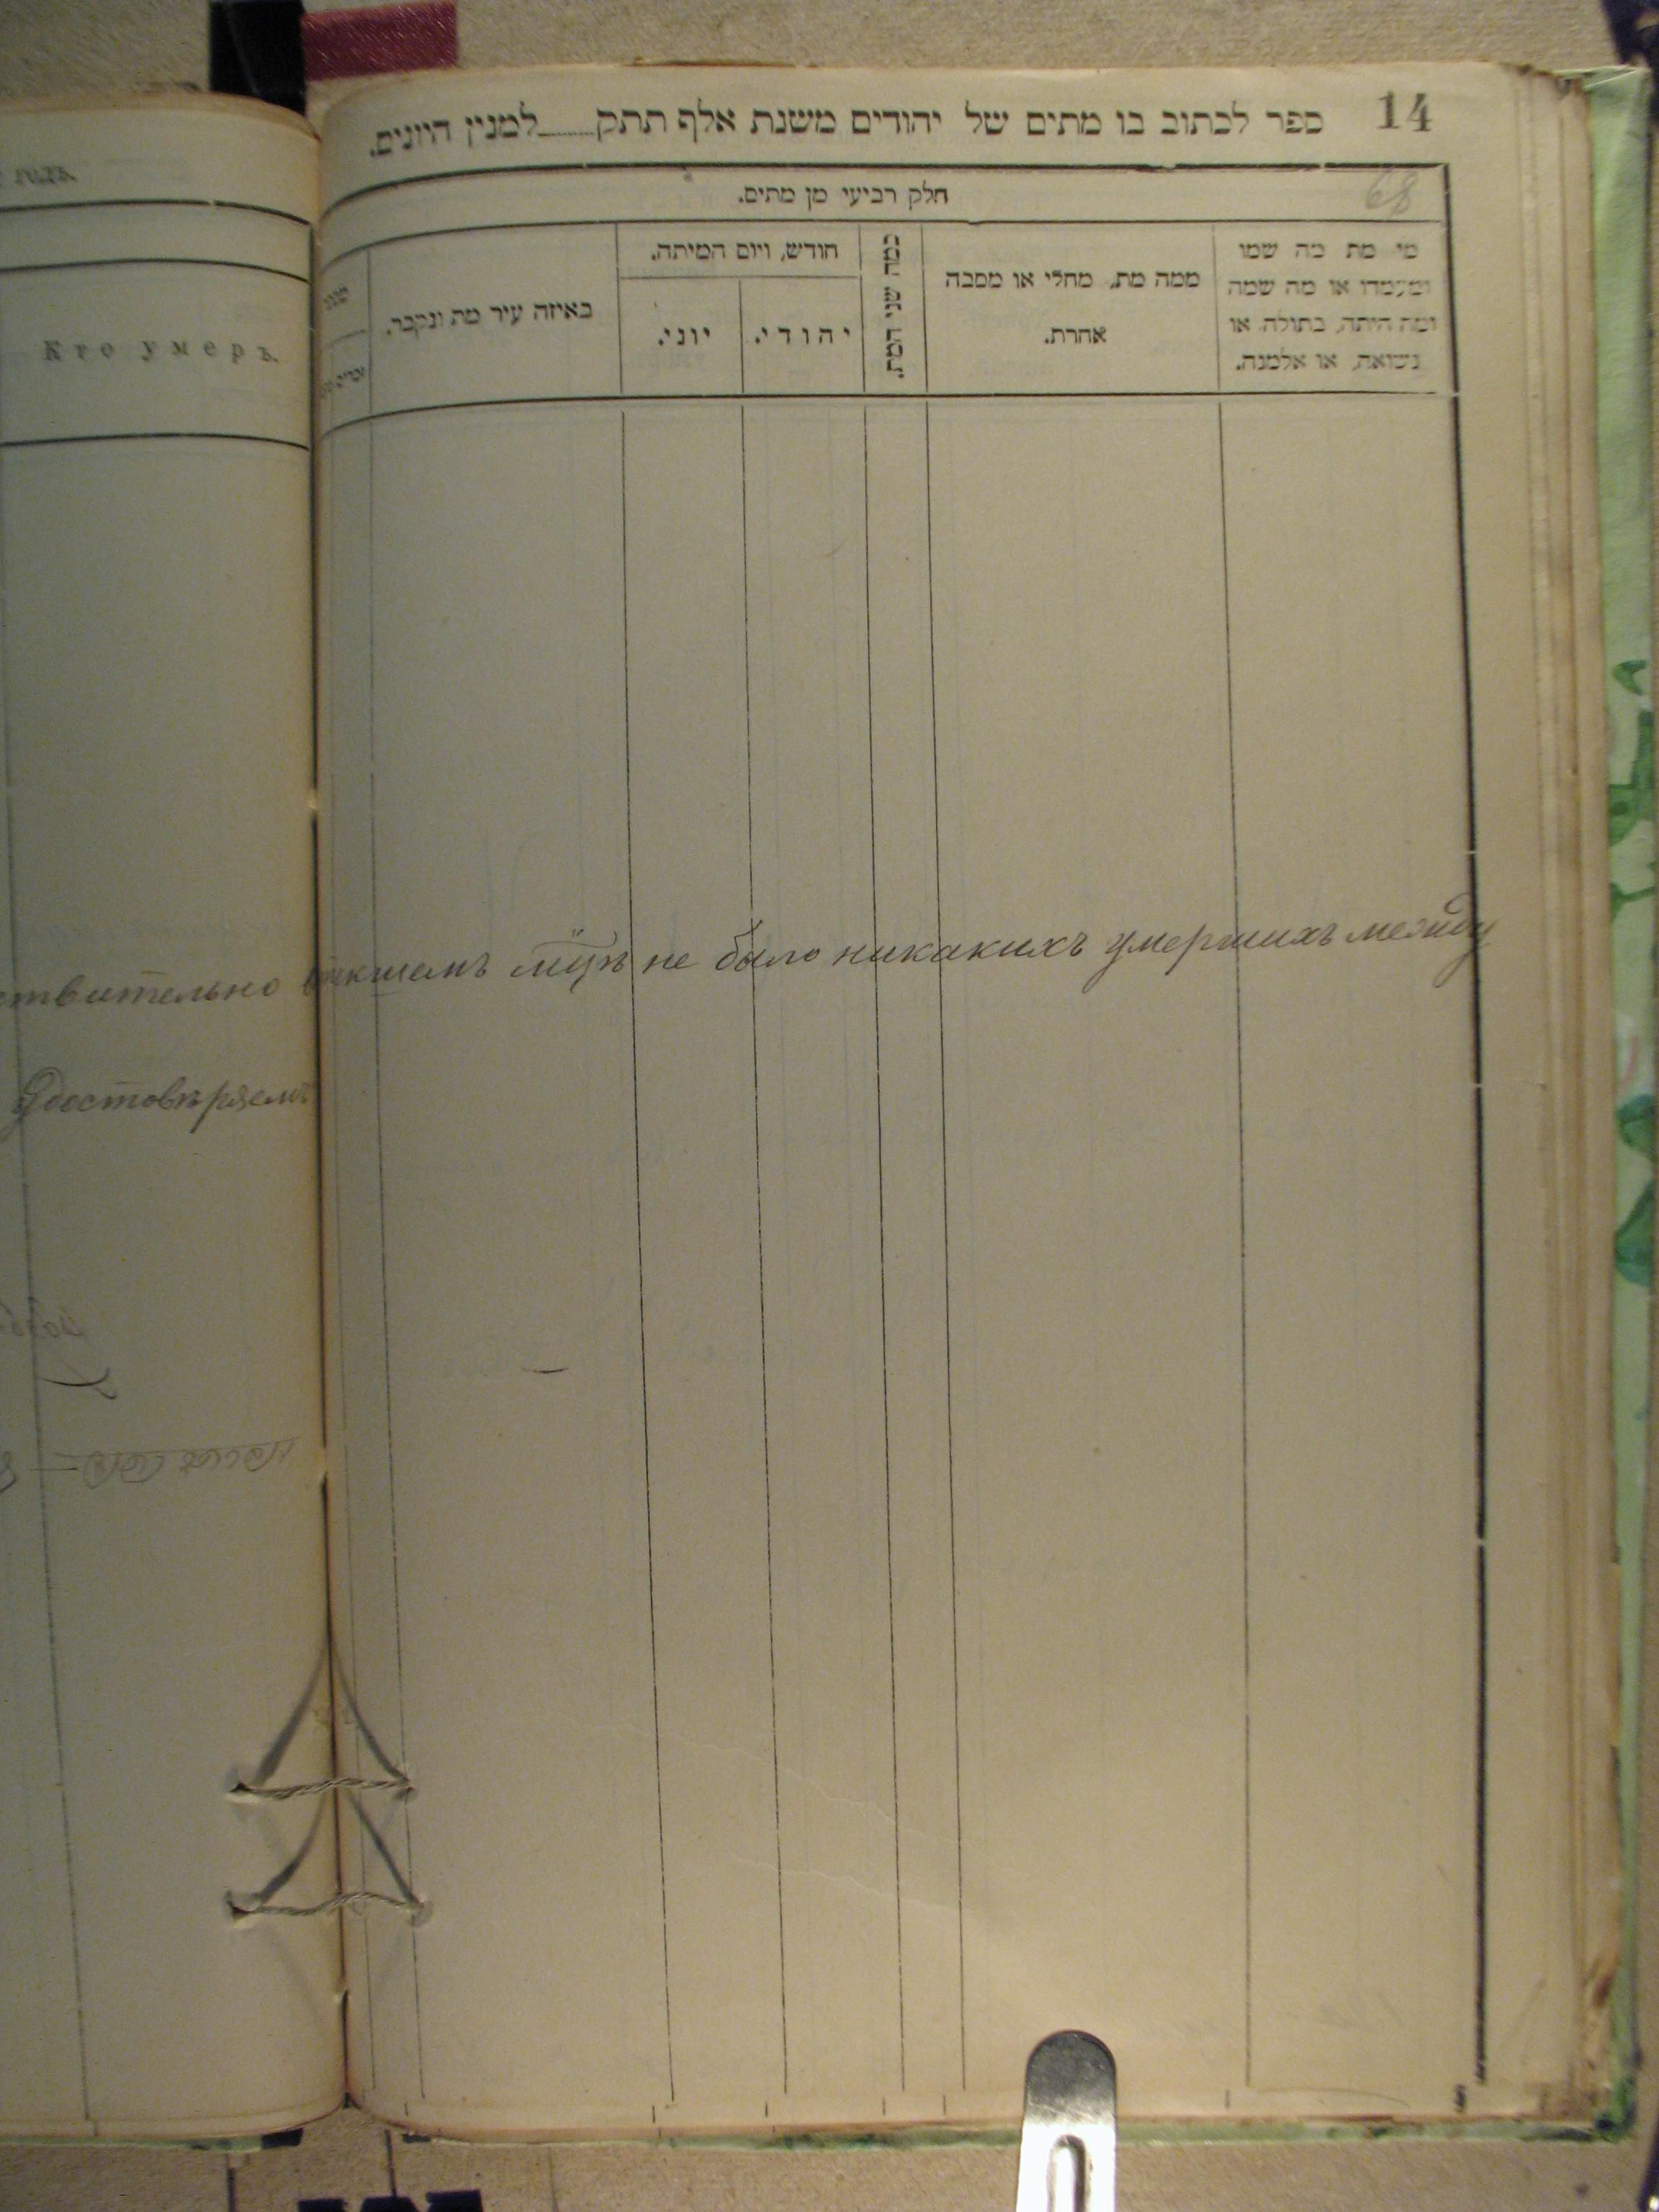 14
ספר לכתוב בו מתים של יהודים משנת אלף תתק למנין היונים.
68
חלק רביעי מן מתים.
מי מת מה שמו
ומעמדו או מה שמה
ומה היתה, בתולה או
נשואה, או אלמנה.
ממה מת, מחלי או מסבה
אחרת.
כמה שני המת.
חודש, ויום המיתה.
יהודי.
יוני.
באיזה עיר מת ונקבר.
Кто умеръ.
ствительно не было никакихъ умершихъ между
Удостовѣряемъ